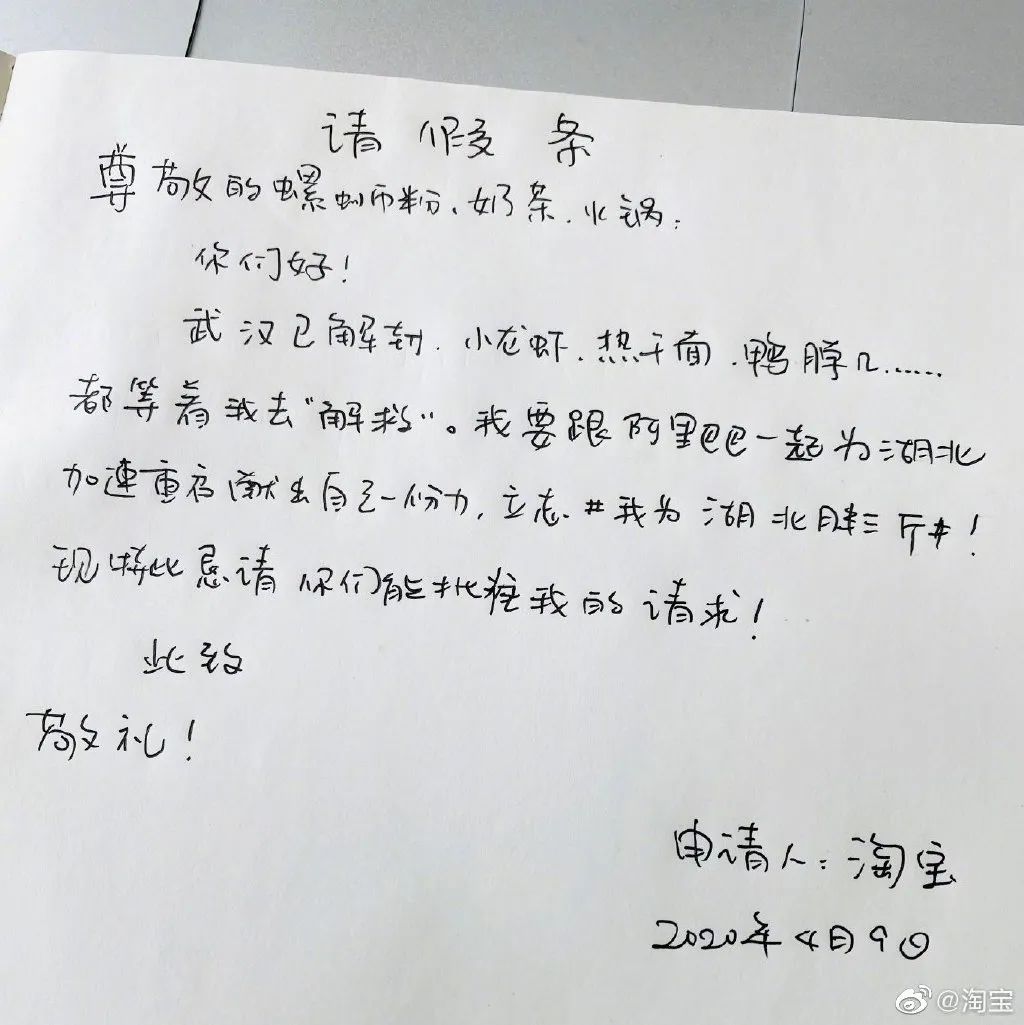 请假条
尊敬的螺蛳粉、奶茶、火锅：
你们好！
武汉已解封，小龙虾、热干面、鸭脖儿……
都等着我去“解救”。我要跟阿里巴巴一起为湖北
加速重启献出自己一份力，立志#我为湖北胖三斤#！
现特此恳请你们能批准我的请求！
此致
敬礼！
申请人：淘宝
2020年4月9日
@淘宝